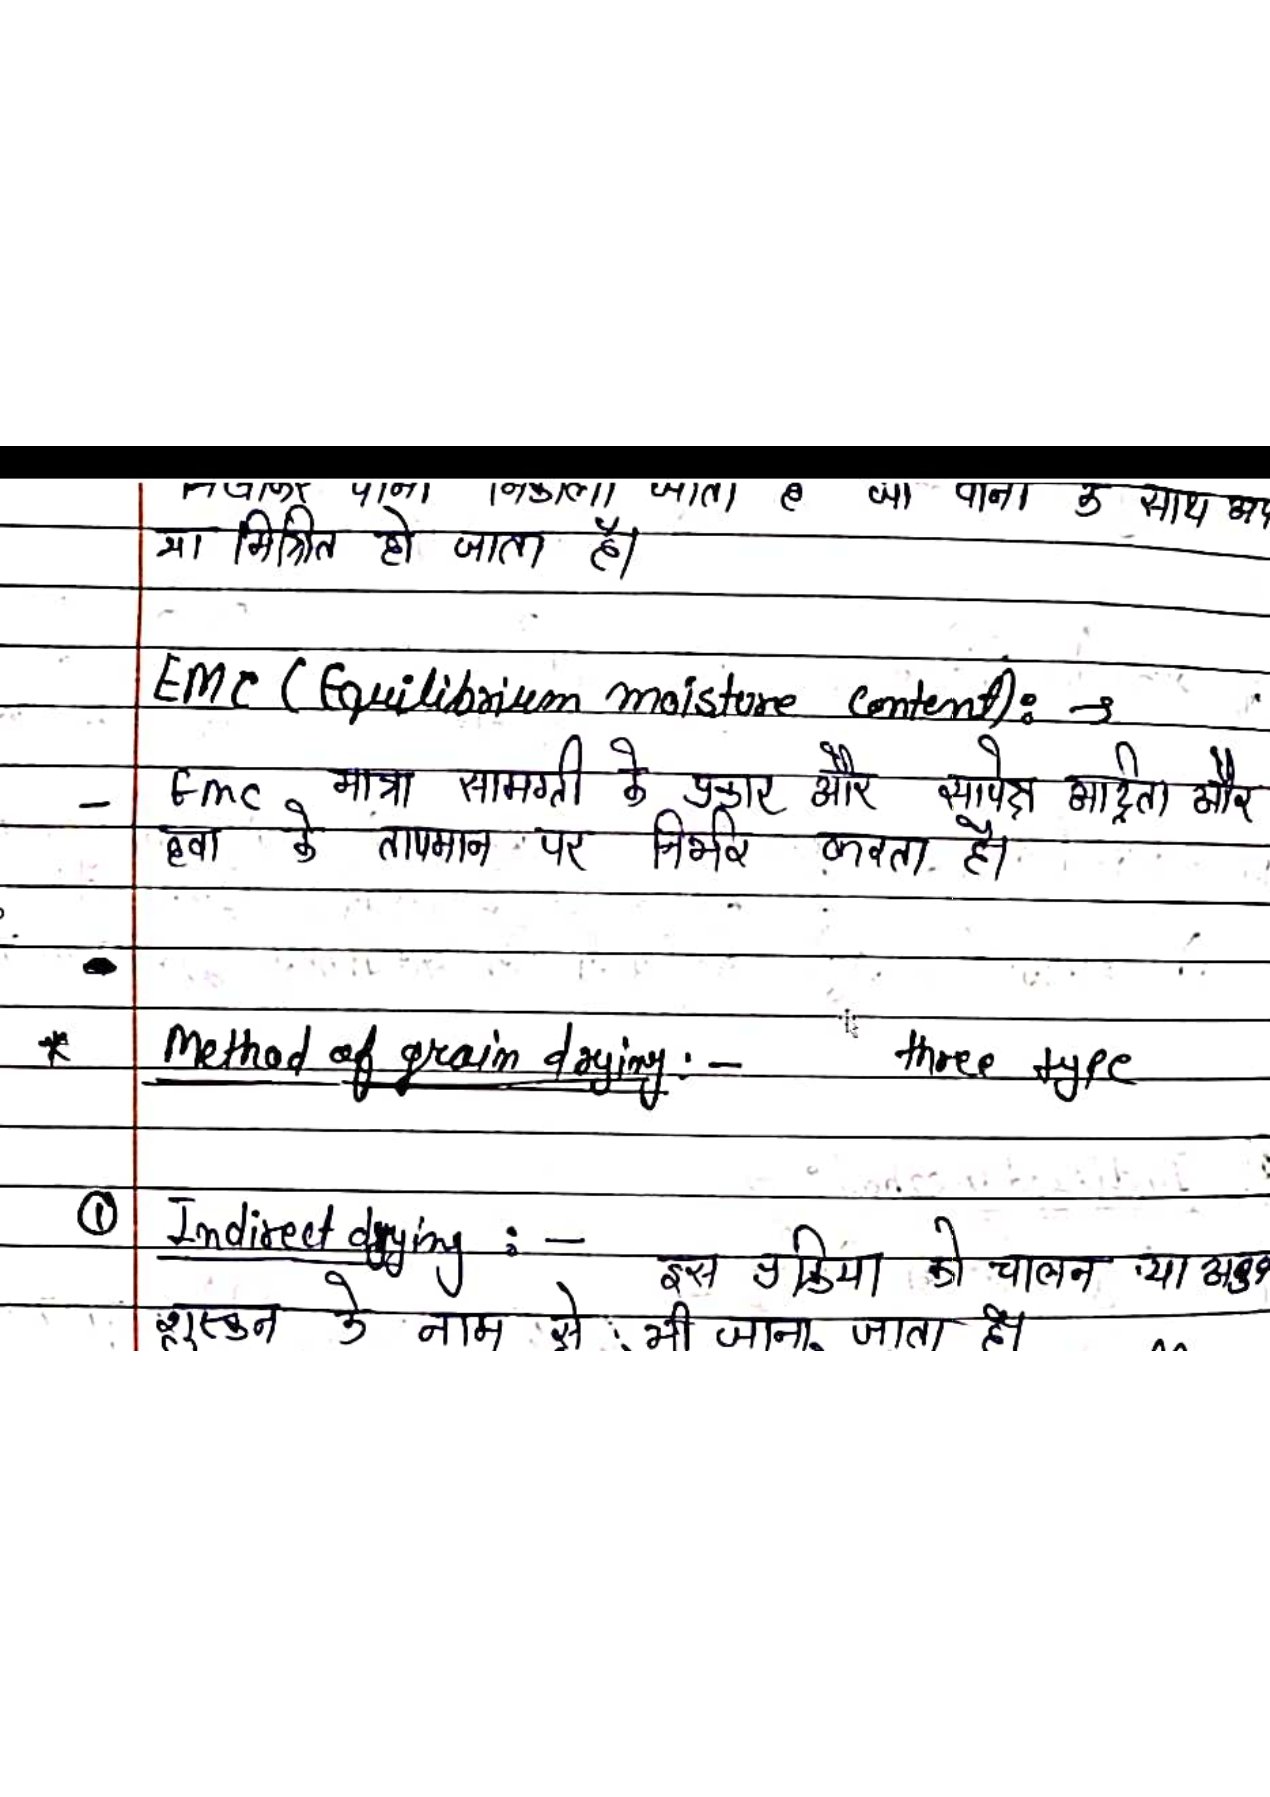 निकाला जाता है जो पानी के साथ
या मिश्रित हो जाता है।
EMC (Equilibrium moisture content): →
- Emc मात्रा सामग्री के प्रकार और सापेक्ष आर्द्रता और
हवा के तापमान पर निर्भर करता है।
* Method of grain drying :- three type
① Indirect drying :- इस प्रक्रिया को चालन या
शुस्कन के नाम से भी जाना जाता है।